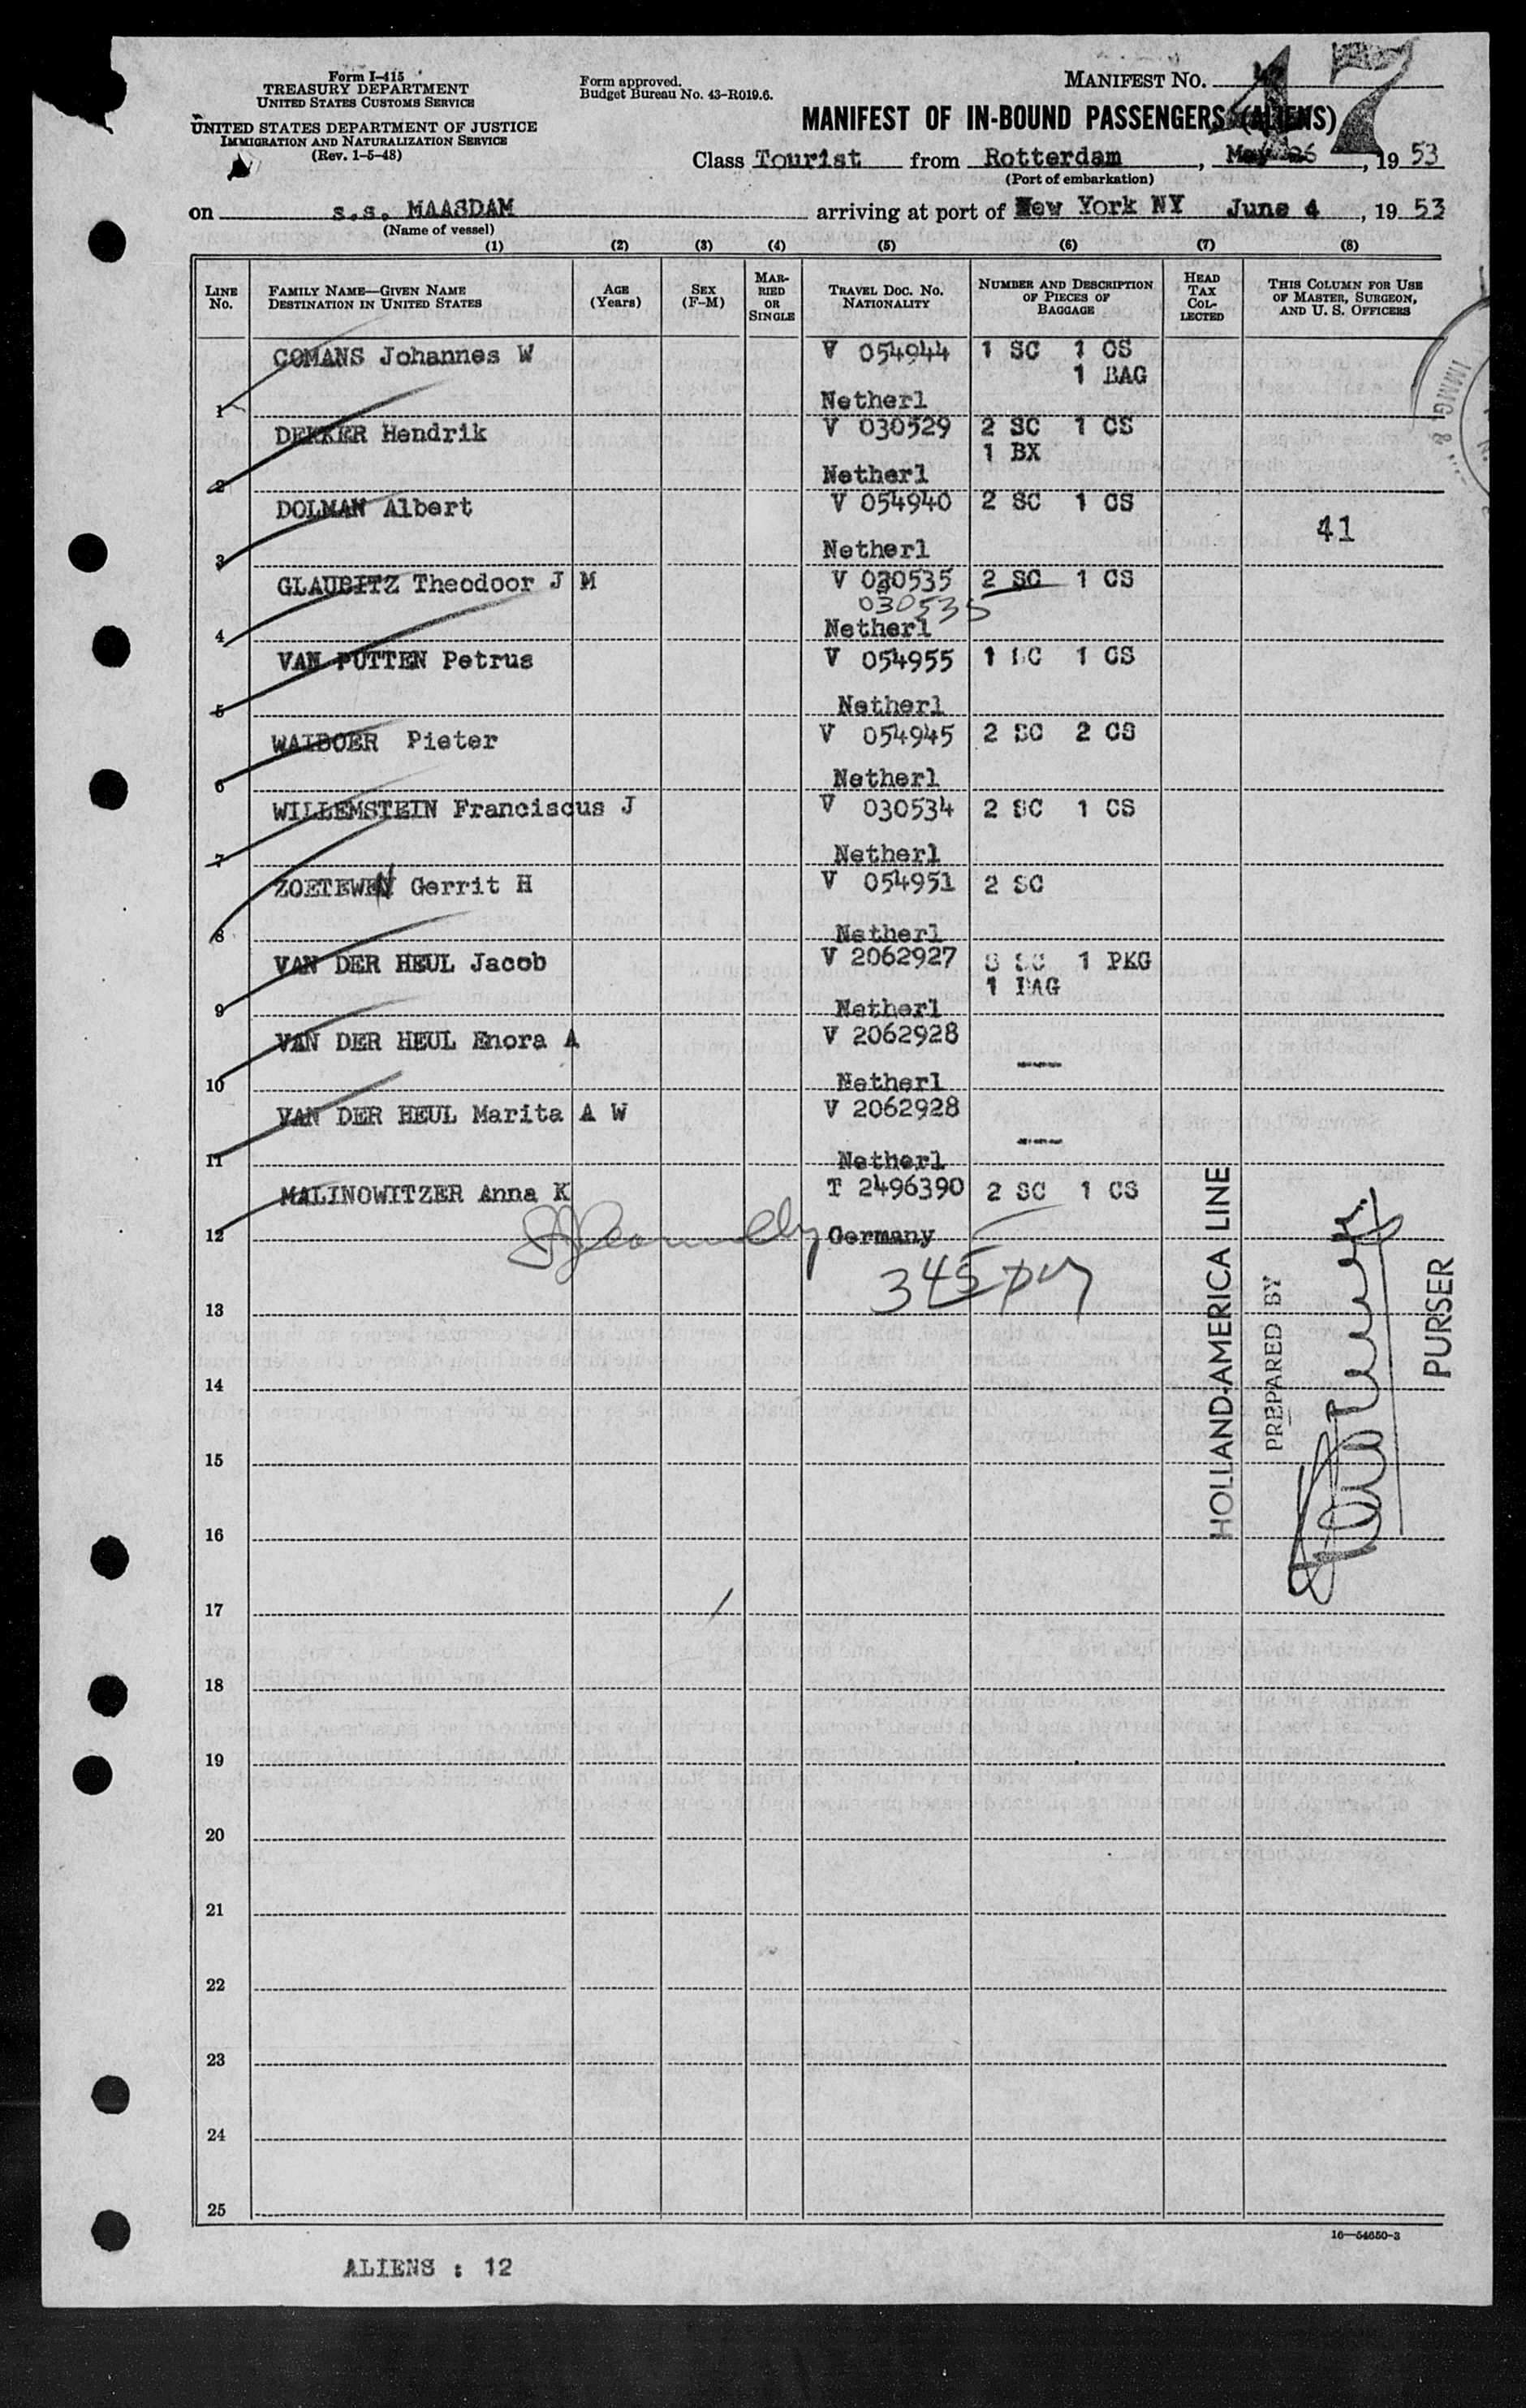 Form I-415
TREASURY DEPARTMENT
UNITED STATES CUSTOMS SERVICE
UNITED STATES DEPARTMENT OF JUSTICE
IMMIGRATION AND NATURALIZATION SERVICE
(Rev. 1-5-48)
Form approved.
Budget Bureau No. 43-R019.6.
MANIFEST NO. 47
MANIFEST OF IN-BOUND PASSENGERS (ALIENS)
Class Tourist from Rotterdam, May 26, 1953
(Port of embarkation)
on s.s. MAASDAM arriving at port of New York NY June 4, 1953
(Name of vessel)
(1) (2) (3) (4) (5) (6) (7) (8)
LINE No. FAMILY NAME—GIVEN NAME DESTINATION IN UNITED STATES AGE (Years) SEX (F-M) MARRIED OR SINGLE TRAVEL DOC. NO. NATIONALITY NUMBER AND DESCRIPTION OF PIECES OF BAGGAGE HEAD TAX COLLECTED THIS COLUMN FOR USE OF MASTER, SURGEON, AND U. S. OFFICERS
IMMG &
COMANS Johannes W V 054944 1 SC 1 CS
1 BAG
1 Netherl
DEKKER Hendrik V 030529 2 SC 1 CS
1 BX
2 Netherl
DOLMAN Albert V 054940 2 SC 1 CS
41
3 Netherl
GLAUBITZ Theodoor J M V 030535 2 SC 1 CS
030535
4 Netherl
VAN PUTTEN Petrus V 054955 1 SC 1 CS
5 Netherl
WAIBOER Pieter V 054945 2 SC 2 CS
6 Netherl
WILLEMSTEIN Franciscus J V 030534 2 SC 1 CS
7 Netherl
ZOETEWEN Gerrit H V 054951 2 SC
8 Netherl
VAN DER HEUL Jacob V 2062927 SC 1 PKG
1 BAG
9 Netherl
VAN DER HEUL Enora A V 2062928 ---
10 Netherl
VAN DER HEUL Marita A W V 2062928 ---
11 Netherl
MALINOWITZER Anna K T 2496390 2 SC 1 CS
12 Germany
345
13
14
15
16
17
18
19
20
21
22
23
24
25
HOLLAND-AMERICA LINE
PREPARED BY
PURSER
16—54650-3
ALIENS : 12